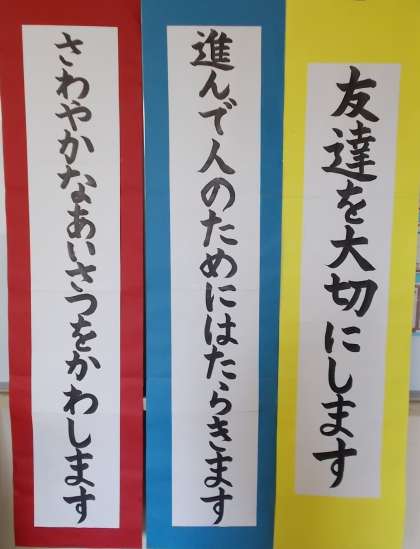 友達を大切にします
進んで人のためにはたらきます
さわやかなあいさつをかわします